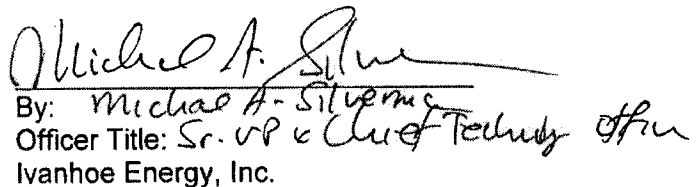 Michael A. Silverman
By: Michael A. Silverman
Officer Title: Sr. VP & Chief Technology Officer
Ivanhoe Energy, Inc.